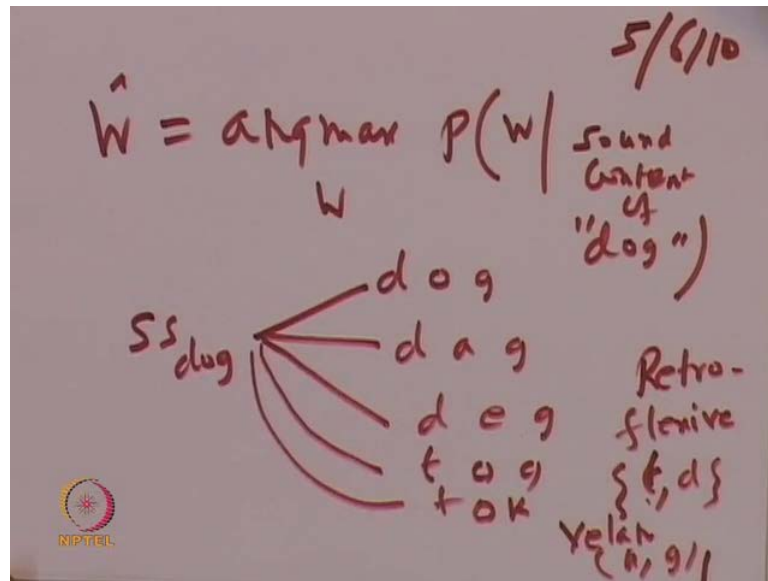 5/6/10
Ŵ = argmax P(W | Sound Content of "dog")
W
SS dog
d o g
d a g
d e g
t o g
t o k
Retro-
flexive
{t, d}
velar
{k, g}
NPTEL